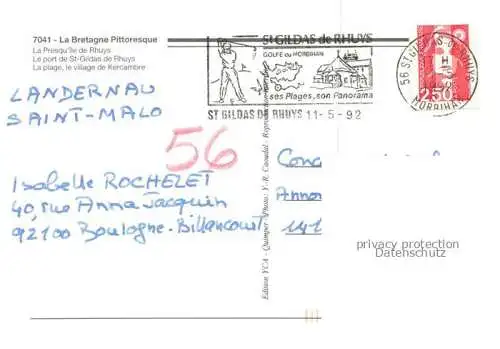 7041 - La Bretagne Pittoresque
La Presqu'île de Rhuys
Le port de St-Gildas de Rhuys
La plage, le village de Kercambre
St GILDAS de RHUYS
GOLFE du MORBIHAN
ses Plages, son Panorama
ST GILDAS DE RHUYS 11-5-92
56 ST GILDAS-DE-RHUYS
MORBIHAN
2,50
LANDERNAU
SAINT-MALO
56
Isabelle ROCHELET
40, rue Anna Jacquin
92100 Boulogne-Billancourt
Edition YCA - Quimper - Photo: Y.-R. Caoudal - Reproduction
Conc
Annon
141
privacy protection
Datenschutz